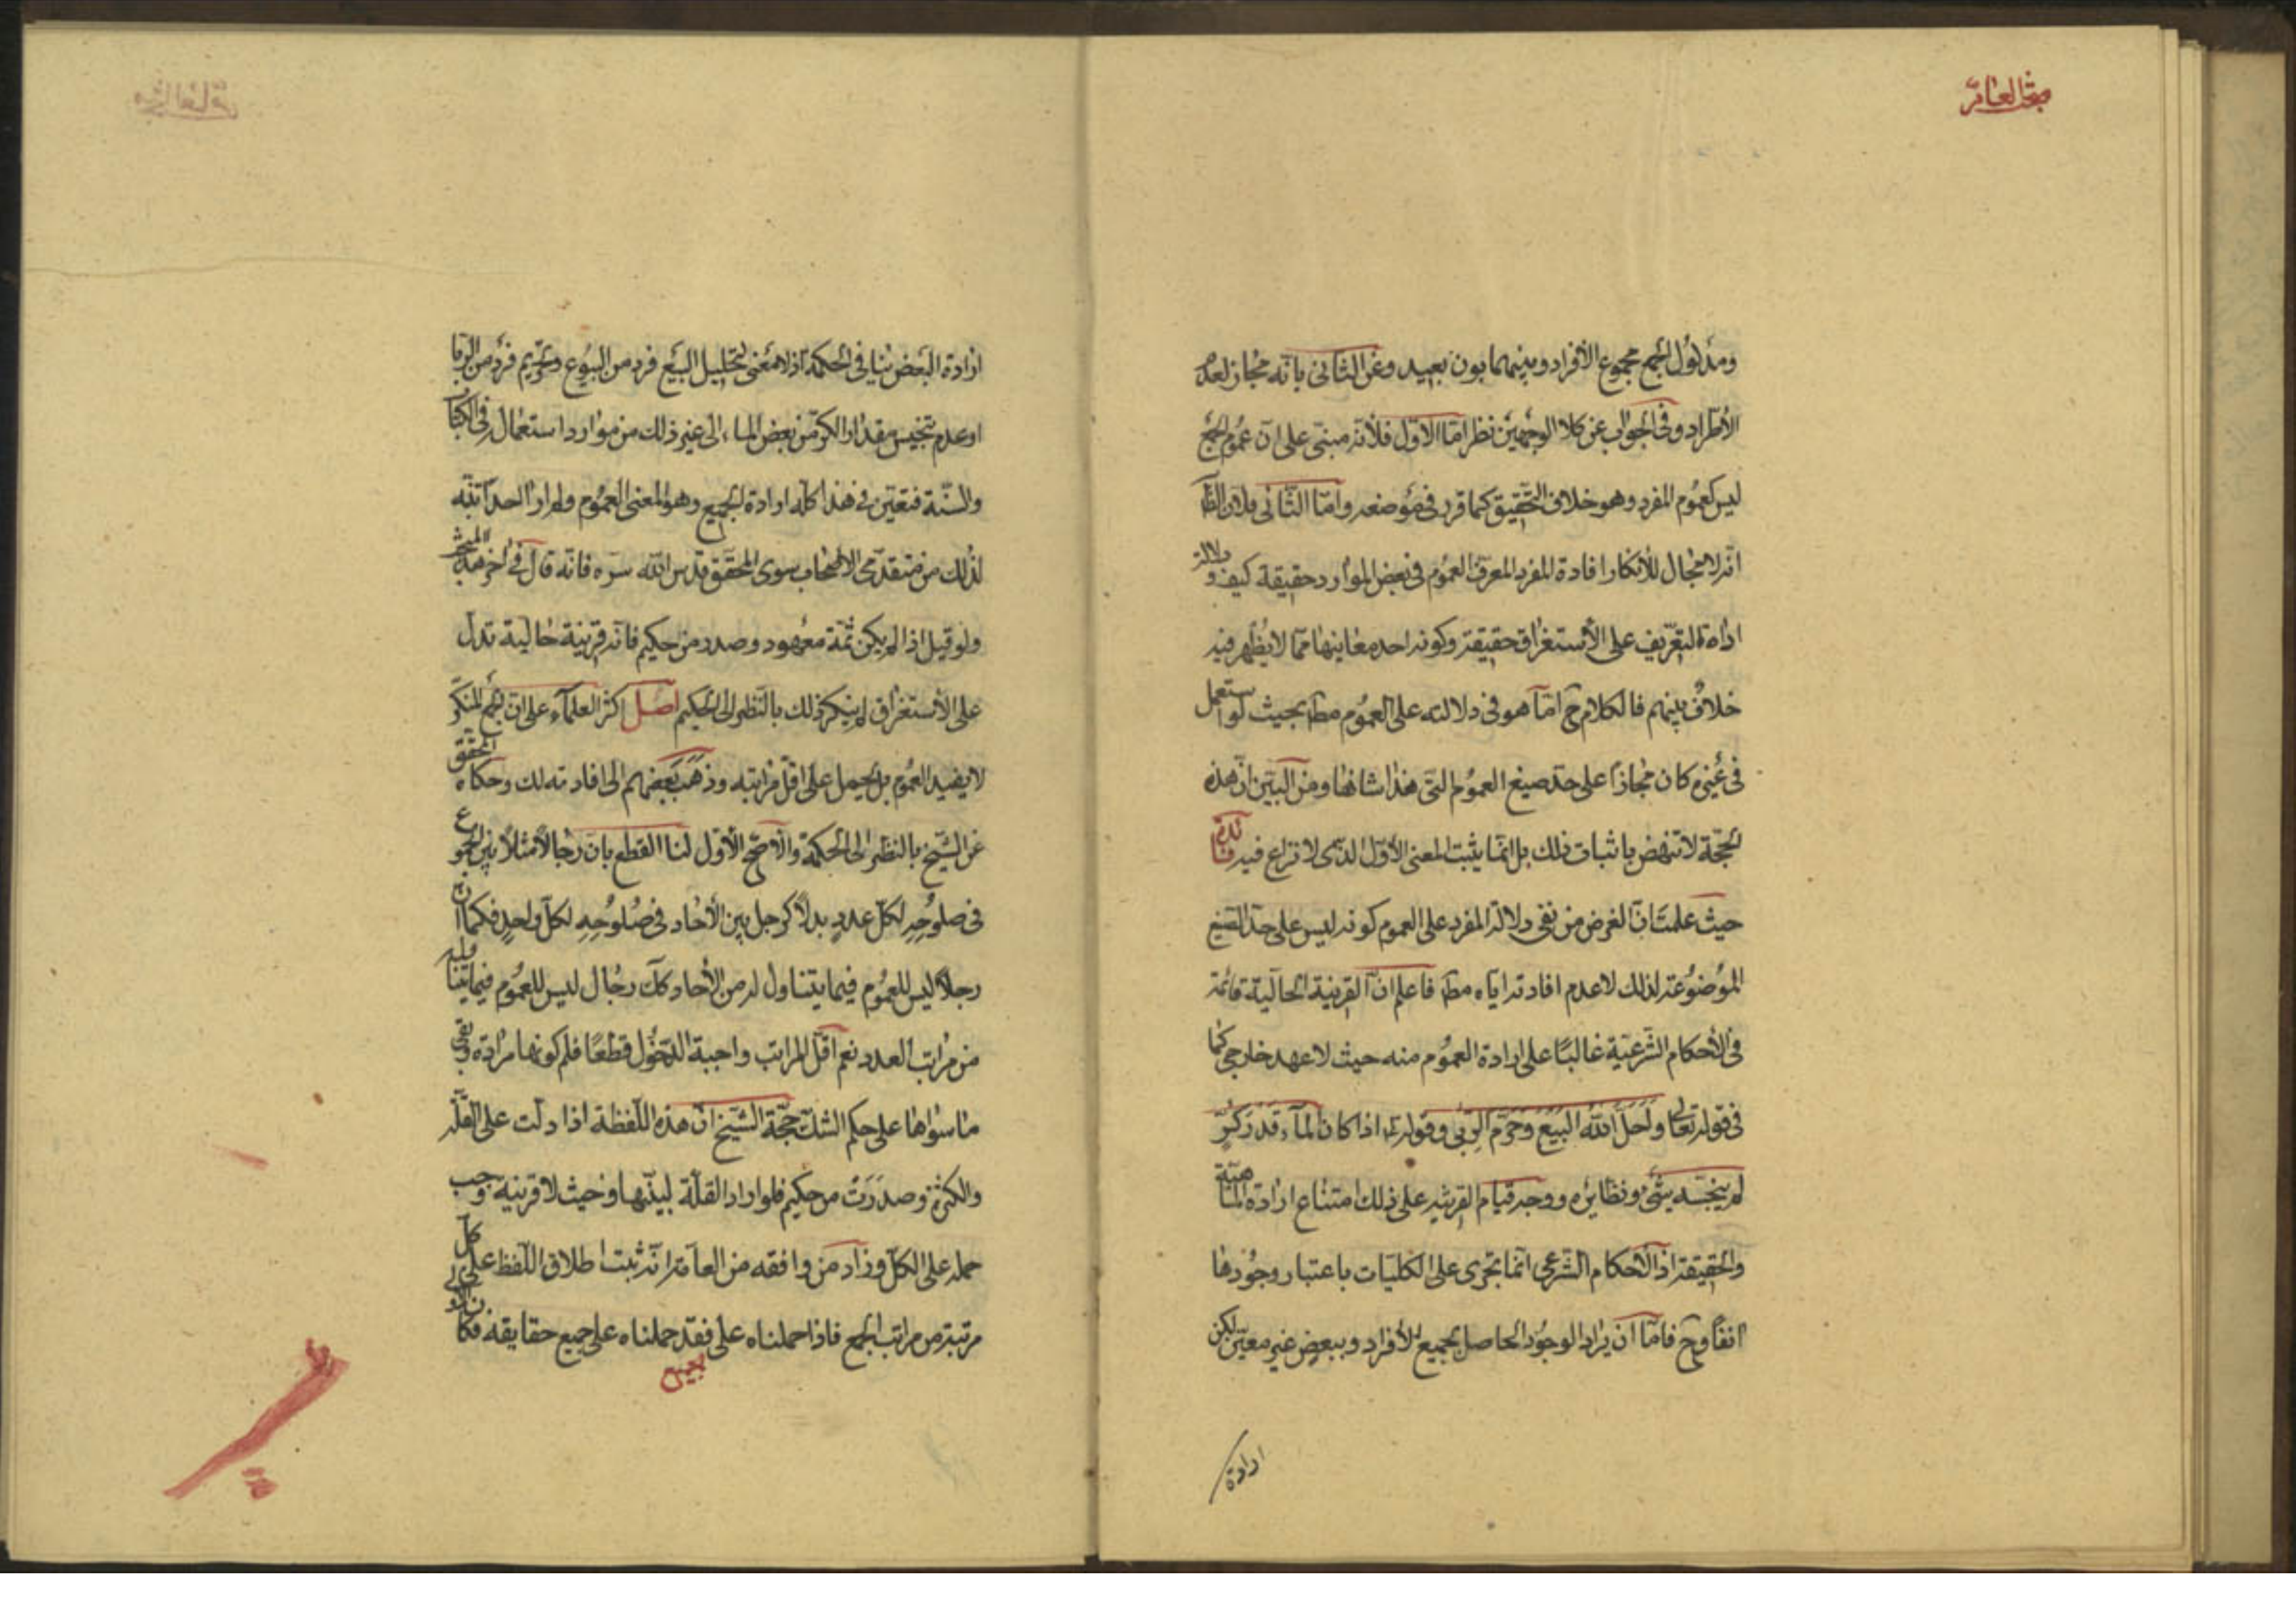 مبحث العام
ومدلول الجمع مجموع الأفراد وبينهما بون بعيد وعن الثاني بانه مجاز لعدم
الأطراد وفي الجواب عن كلا الوجهين نظر امّا الاوّل فلأنه مبنىّ على انّ عموم الجمع
ليس كعموم المفرد وهو خلاف التحقيق كما قرر في موضعه وامّا الثّانى فلان الظّ
انه لا مجال للأنكار افادة المفرد المعرف العموم في بعض الموارد حقيقة كيف ودلالة
اداة التعريف على الأستغراق حقيقة وكونه احد معانيها ممّا لا يظهر فيه
خلاف بينهم فالكلام ح امّا هو في دلالته على العموم مطّ بحيث لو استعمل
في غيره كان مجازاً على حدّ صيغ العموم التي هذا شانها ومن البيّن انّ هذه
الحجّة لا تنهض باثبات ذلك بل انّما يثبت المعنى الأوّل الذّى لا نزاع فيه فائدة
حيث علمت انّ الغرض من نفى دلالة المفرد على العموم كونه ليس على حدّ الصّيغ
الموضوعة لذلك لا عدم افادته ايّاه مطّ فاعلم انّ القرينة الحاليّة قائمة
في الأحكام الشّرعيّة غالبًا على ارادة العموم منه حيث لا عهد خارجى كما
في قوله تعالى واحلّ الله البيع وحرّم الرّبى وقوله ع اذا كان الماء قدر كرّ
لم ينجّسه شئ ونظايره ووجه قيام القرينة على ذلك امتناع ارادة الماهيّة
والحقيقة اذ الأحكام الشّرعى انّما تجرى على الكليّات باعتبار وجودها
انفاً وح فامّا ان يراد الوجود الحاصل بجميع الأفراد وببعض غير معيّن لكن
ارادة
ارادة البعض ينافى الحكمة اذ لا معنى لتحليل البيع فرد من البيوع وتحريم فرد من الرّبا
او عدم تنجيس مقدار الكرّ من بعض الماء الى غير ذلك من موارد استعمال في الكتاب
والسّنة فتعيّن في هذا كلّه ارادة الجميع وهو المعنى العموم ولم ار احداً تنبّه
لذلك من متقدّمى الاصحاب سوى المحقّق قدس الله سرّه فانّه قال في اخر هذا المبحث
ولو قيل اذا لم يكن ثمّة معهود وصدر من حكيم فانّه قرينة حالية تدلّ
على الأستغراق لم ينكر ذلك بالنّظر الى الحكيم اصل اكثر العلماء على انّ الجمع المنكّر
لا يفيد العموم بل يحمل على اقلّ مراتبه وذهب بعضهم الى افادته لك وحكاه المحقّق
عن الشّيخ بالنظر الى الحكمة والأصحّ الأوّل لنا القطع بانّ رجالاً مثلاً بين الجموع
في صلوحه لكلّ عدد بدلاً كرجل بين الأحاد في صلوحه لكلّ واحد فكما انّ
رجلاً ليس للعموم فيما يتناوله من الأحاد كك رجال ليس للعموم فيما يتناوله
من مراتب العدد نعم اقلّ المراتب واجبة الدّخول قطعًا فلم كونها مرادة وبقى
ما سواها على حكم الشك حجّة الشّيخ انّ هذه اللّفظة اذا دلّت على القلّة
والكثرة وصدرت من حكيم فلو اراد القلّة لبيّنها وحيث لا قرينة وجب
حمله على الكلّ وزاد من وافقه من العامّة انّه ثبت اطلاق اللّفظ على كلّ
مرتبة من مراتب الجمع فاذا حملناه على الجميع فقد حملناه على جميع حقايقه فكان اولى